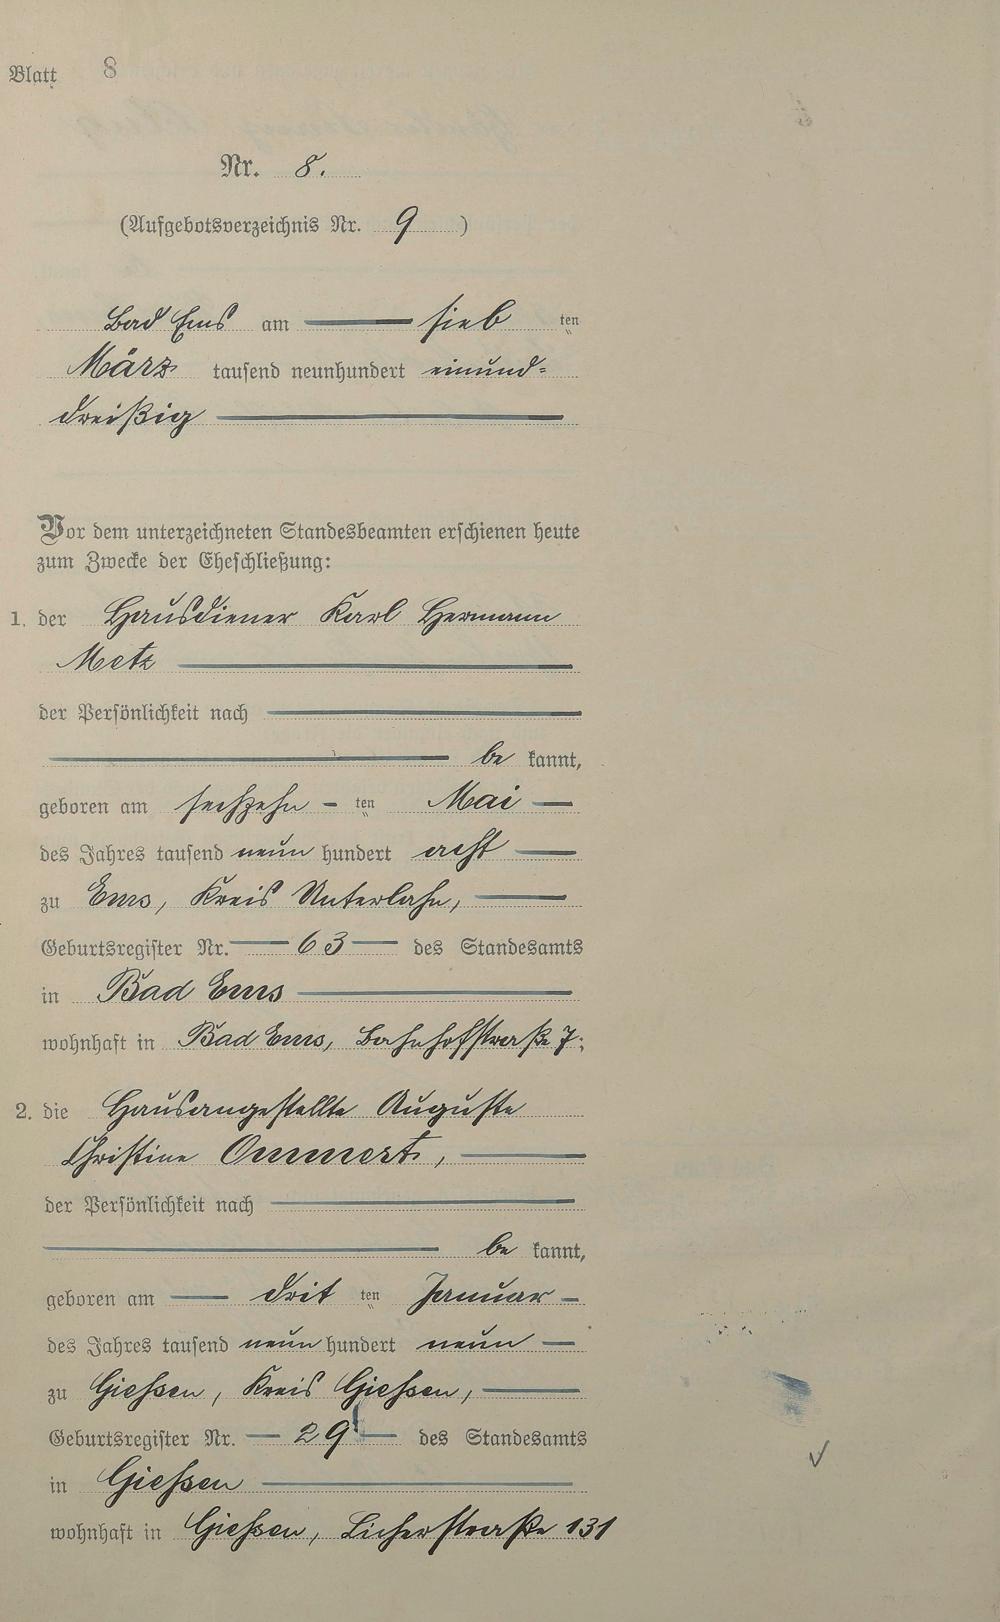 Blatt 8
Nr. 8.
(Aufgebotsverzeichnis Nr. 9 )
Bad Ems am sieb ten
März tausend neunhundert einund-
dreißig
Vor dem unterzeichneten Standesbeamten erschienen heute
zum Zwecke der Eheschließung:
1. der Hausdiener Karl Hermann
Metz
der Persönlichkeit nach
be kannt,
geboren am sechzehn - ten Mai
des Jahres tausend neun hundert acht
zu Ems, Kreis Unterlahn,
Geburtsregister Nr. 63 des Standesamts
in Bad Ems
wohnhaft in Bad Ems, Bahnhofstraße 7;
2. die Hausangestellte Auguste
Christine Ommert,
der Persönlichkeit nach
be kannt,
geboren am drit ten Januar
des Jahres tausend neun hundert neun
zu Giessen, Kreis Giessen,
Geburtsregister Nr. 29 des Standesamts
in Giessen
wohnhaft in Giessen, Licherstraße 131